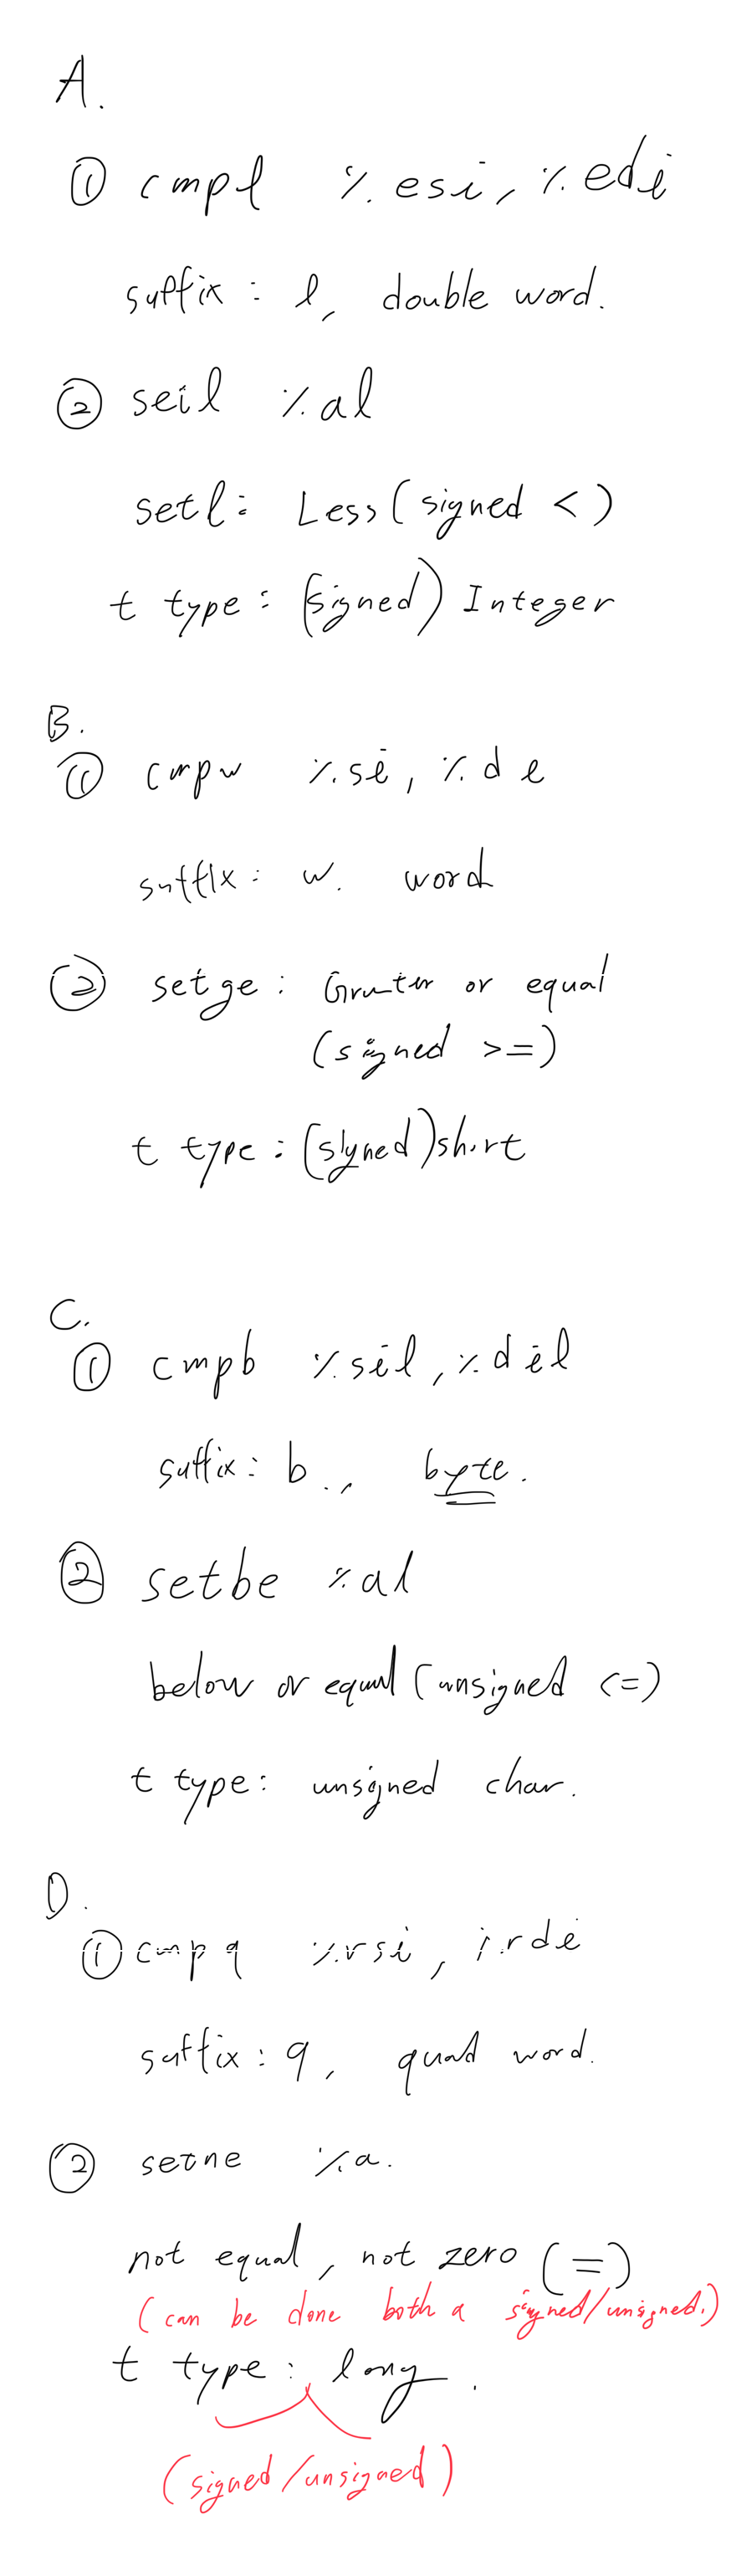 A.
① cmpl %esi, %edi
suffix : l, double word.
② seil %al
setl : Less (signed <)
t type : (signed) Integer
B.
① cmpw %si, %de
suffix : w. word
② setge : Greater or equal
(signed >=)
t type : (signed) short
C.
① cmpb %sil, %dil
suffix : b., byte.
② setbe %al
below or equal (unsigned <=)
t type : unsigned char.
D.
① cmpq %rsi, %rdi
suffix : q, quad word.
② setne %a.
not equal, not zero (=)
(can be done both a signed/unsigned.)
t type : long.
(signed/unsigned)